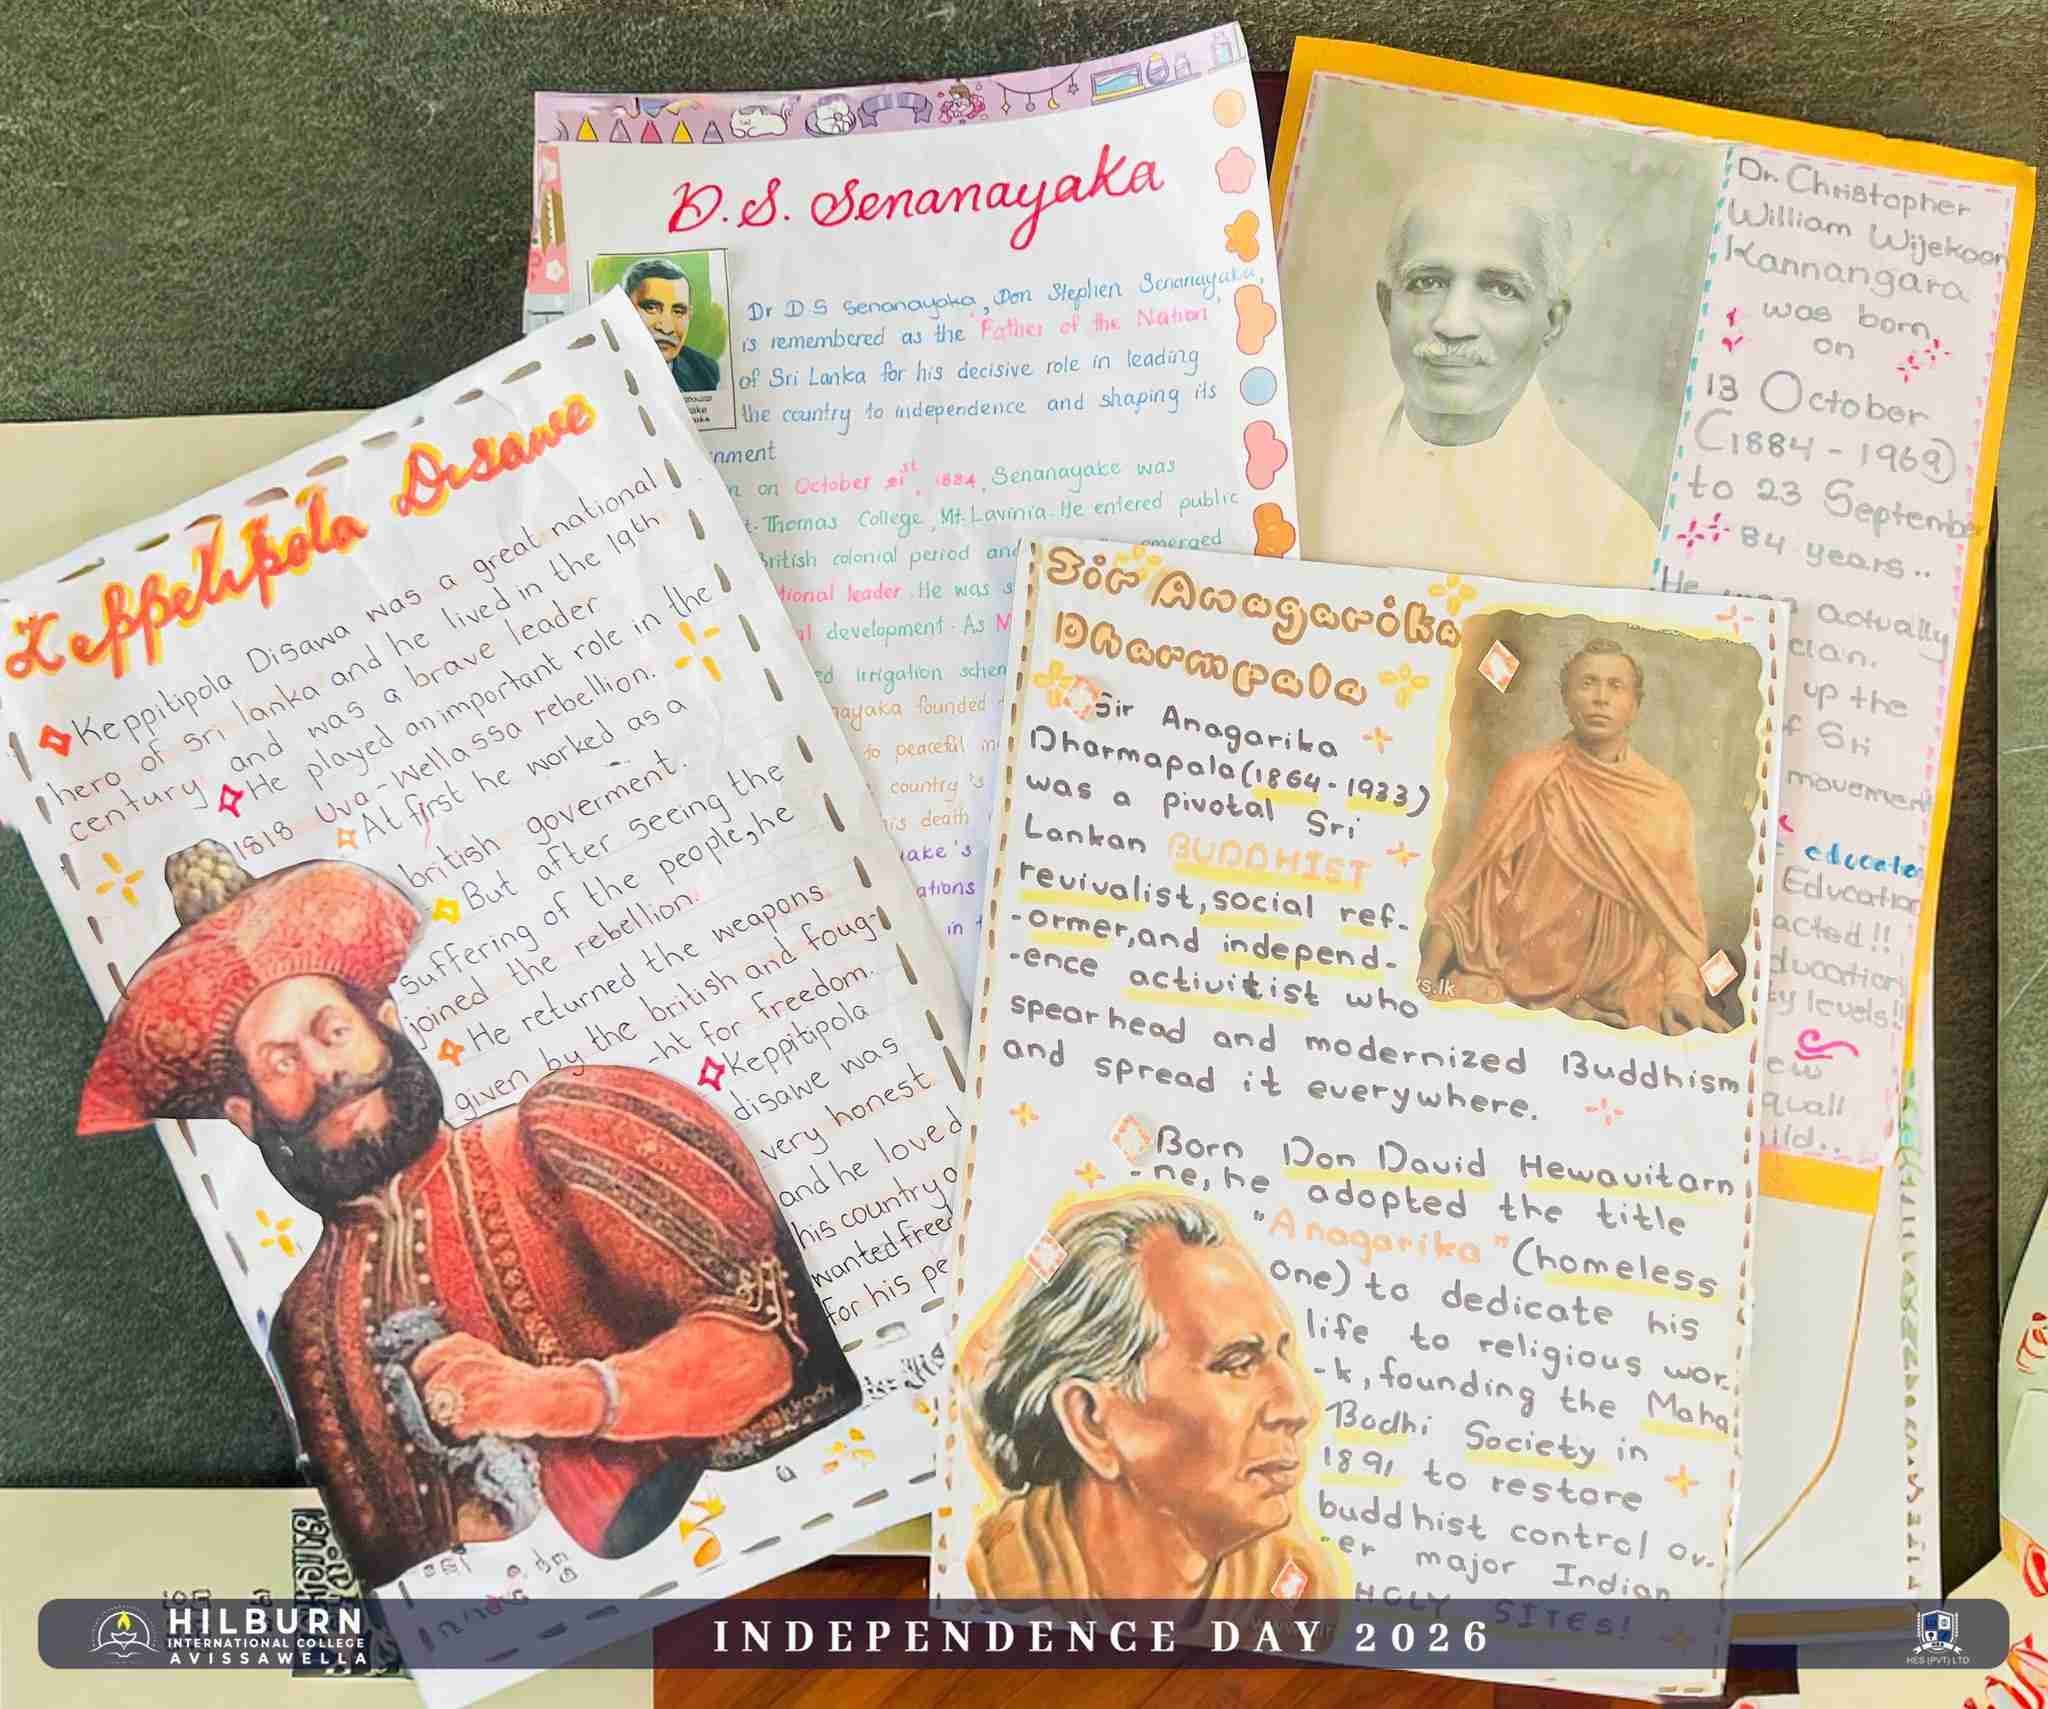 Keppetipola Disawe
Keppitipola Disawa was a great national
hero of Sri lanka and he lived in the 19th
century and was a brave leader
He played an important role in the
1818 Uva-Wellassa rebellion.
At first he worked as a
british goverment.
But after seeing the
suffering of the people, he
joined the rebellion.
He returned the weapons
given by the british and foug-
-ht for freedom.
Keppitipola
disawe was
very honest
and he loved
his country
wanted free
for his pe
D. S. Senanayaka
Dr D S Senanayaka, Don Stephen Senanayaka,
is remembered as the "Father of the Nation"
of Sri Lanka for his decisive role in leading
the country to independence and shaping its
nment
on October 21st, 1884, Senanayake was
t. Thomas College, Mt. Lavinia. He entered public
British colonial period and emerged
tional leader. He was s
al development. As M
ed irrigation schem
nayaka founded
to peaceful in
country's
is death
ake's
ations
in
Dr. Christopher
William Wijekoon
Kannangara
was born
on
13 October
(1884 - 1969)
to 23 September
84 years..
He was actually
cian.
up the
f Sri
movement
education
Education
acted!!
ducation
ty levels!!
ew
quall
ild..
Sir Anagarika
Dharmpala
Sir Anagarika
Dharmapala (1864 - 1933)
was a pivotal Sri
Lankan BUDDHIST
revivalist, social ref-
-ormer, and independ-
-ence activitist who
spearhead and modernized Buddhism
and spread it everywhere.
Born Don David Hewavitarn
-ne, he adopted the title
"Anagarika" (homeless
one) to dedicate his
life to religious wor-
-k, founding the Maha
Bodhi Society in
1891 to restore
buddhist control ov-
-er major Indian
HOLY SITES!
vs.lk
HILBURN
INTERNATIONAL COLLEGE
AVISSAWELLA
INDEPENDENCE DAY 2026
HES (PVT) LTD